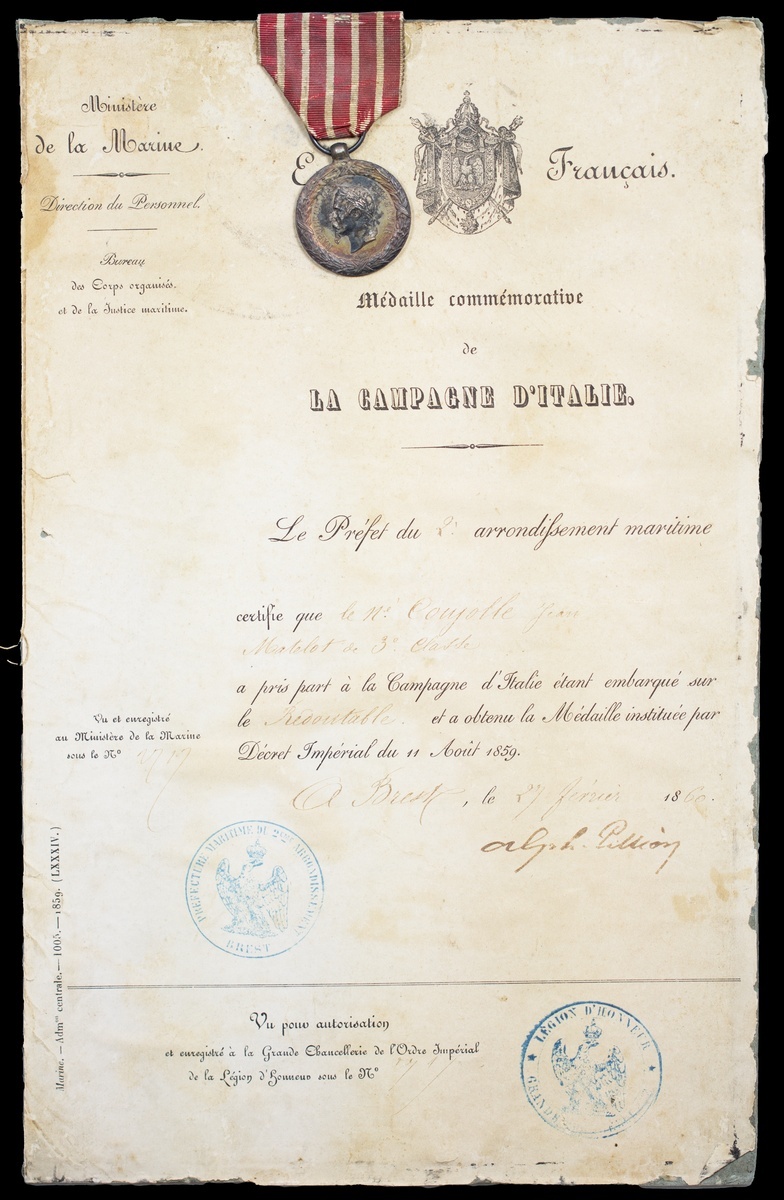 Ministère
de la Marine.
Direction du Personnel.
Bureau
des Corps organisés.
et de la Justice maritime.
E
Français.
Médaille commémorative
de
LA CAMPAGNE D'ITALIE.
Le Préfet du 2e arrondissement maritime
certifie que le Né Jean
Matelot de 3e Classe
a pris part à la Campagne d'Italie étant embarqué sur
le Redoutable. et a obtenu la Médaille instituée par
Décret Impérial du 11 Août 1859.
A Brest, le 27 février 1860.
Vu et enregistré
au Ministère de la Marine
sous le No
PRÉFECTURE MARITIME DU 2me ARRONDISSEMENT
BREST
Marine. — Admon centrale. — 1005. — 1859. (LXXXIV.)
Vu pour autorisation
et enregistré à la Grande Chancellerie de l'Ordre Impérial
de la Légion d'Honneur sous le No
LÉGION D'HONNEUR
GRANDE